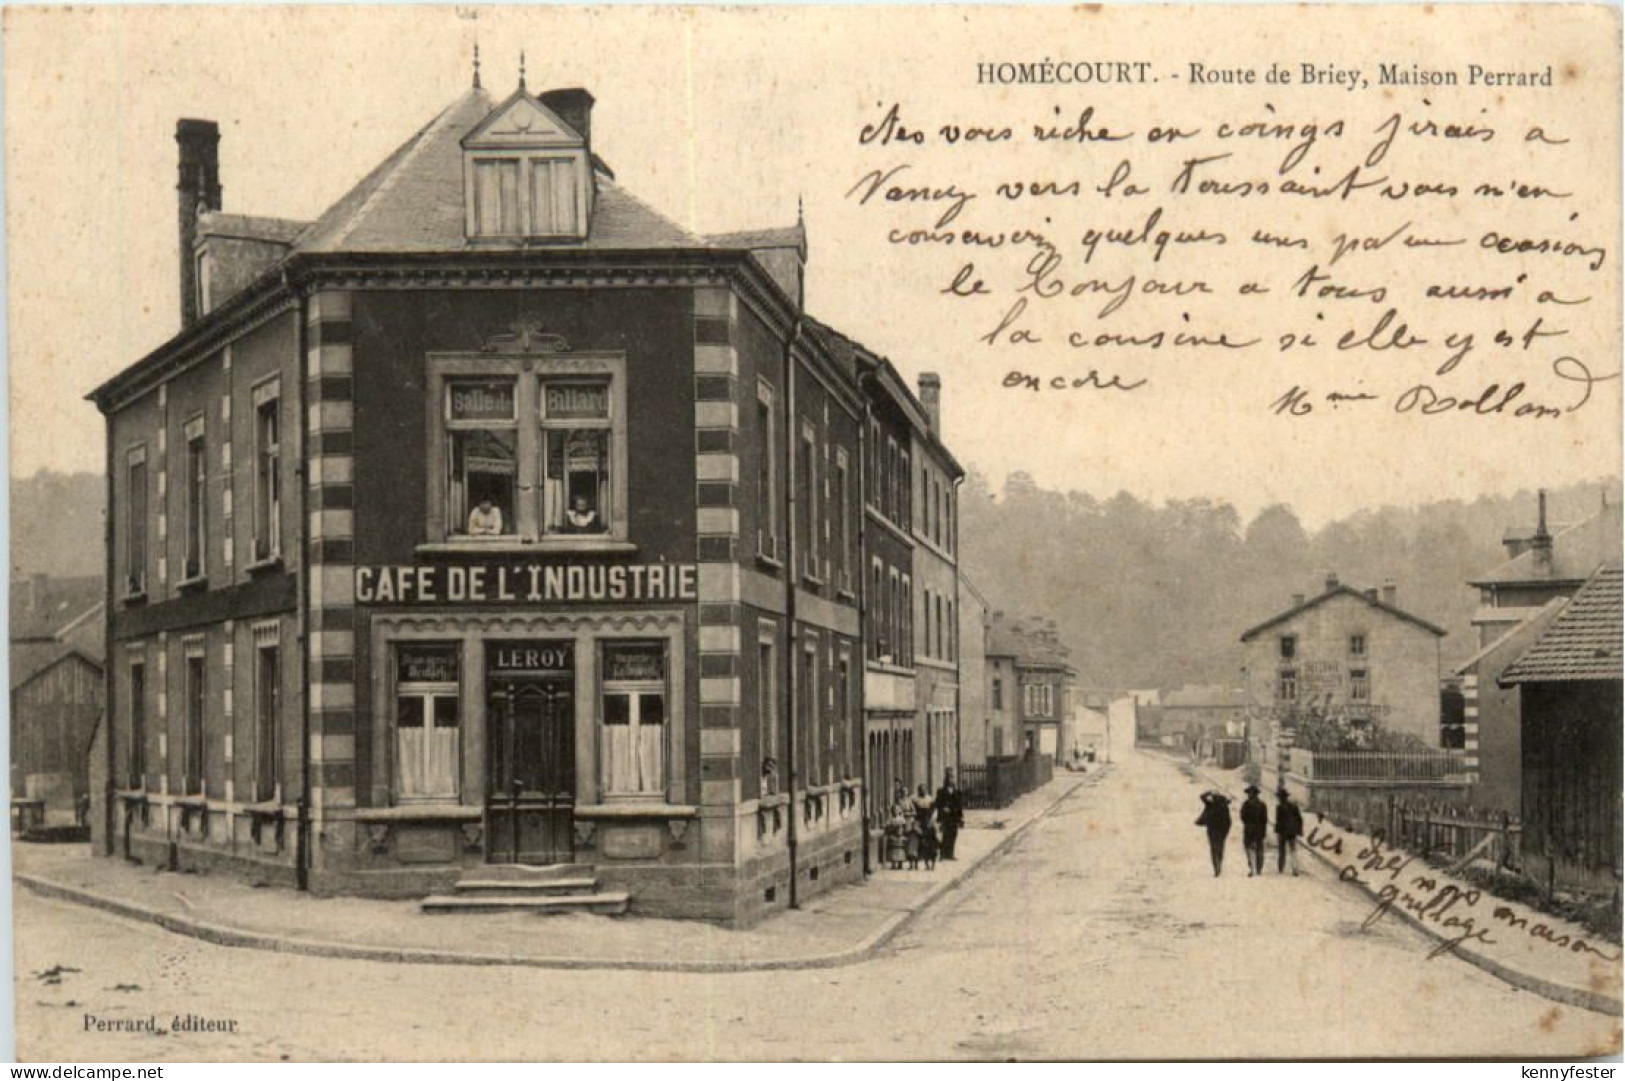 HOMÉCOURT. - Route de Briey, Maison Perrard
étes vous riche en coings j'irais a
Nancy vers la Toussaint vous m'en
conserverez quelques uns par une ocasions
le bonjour a tous aussi a
la cousine si elle y est
encore
Mme Rolland
Salle de Billard
CAFE DE L'INDUSTRIE
LEROY
ici
maison
a grillage
Perrard, éditeur
delcampe.net
kennyfester